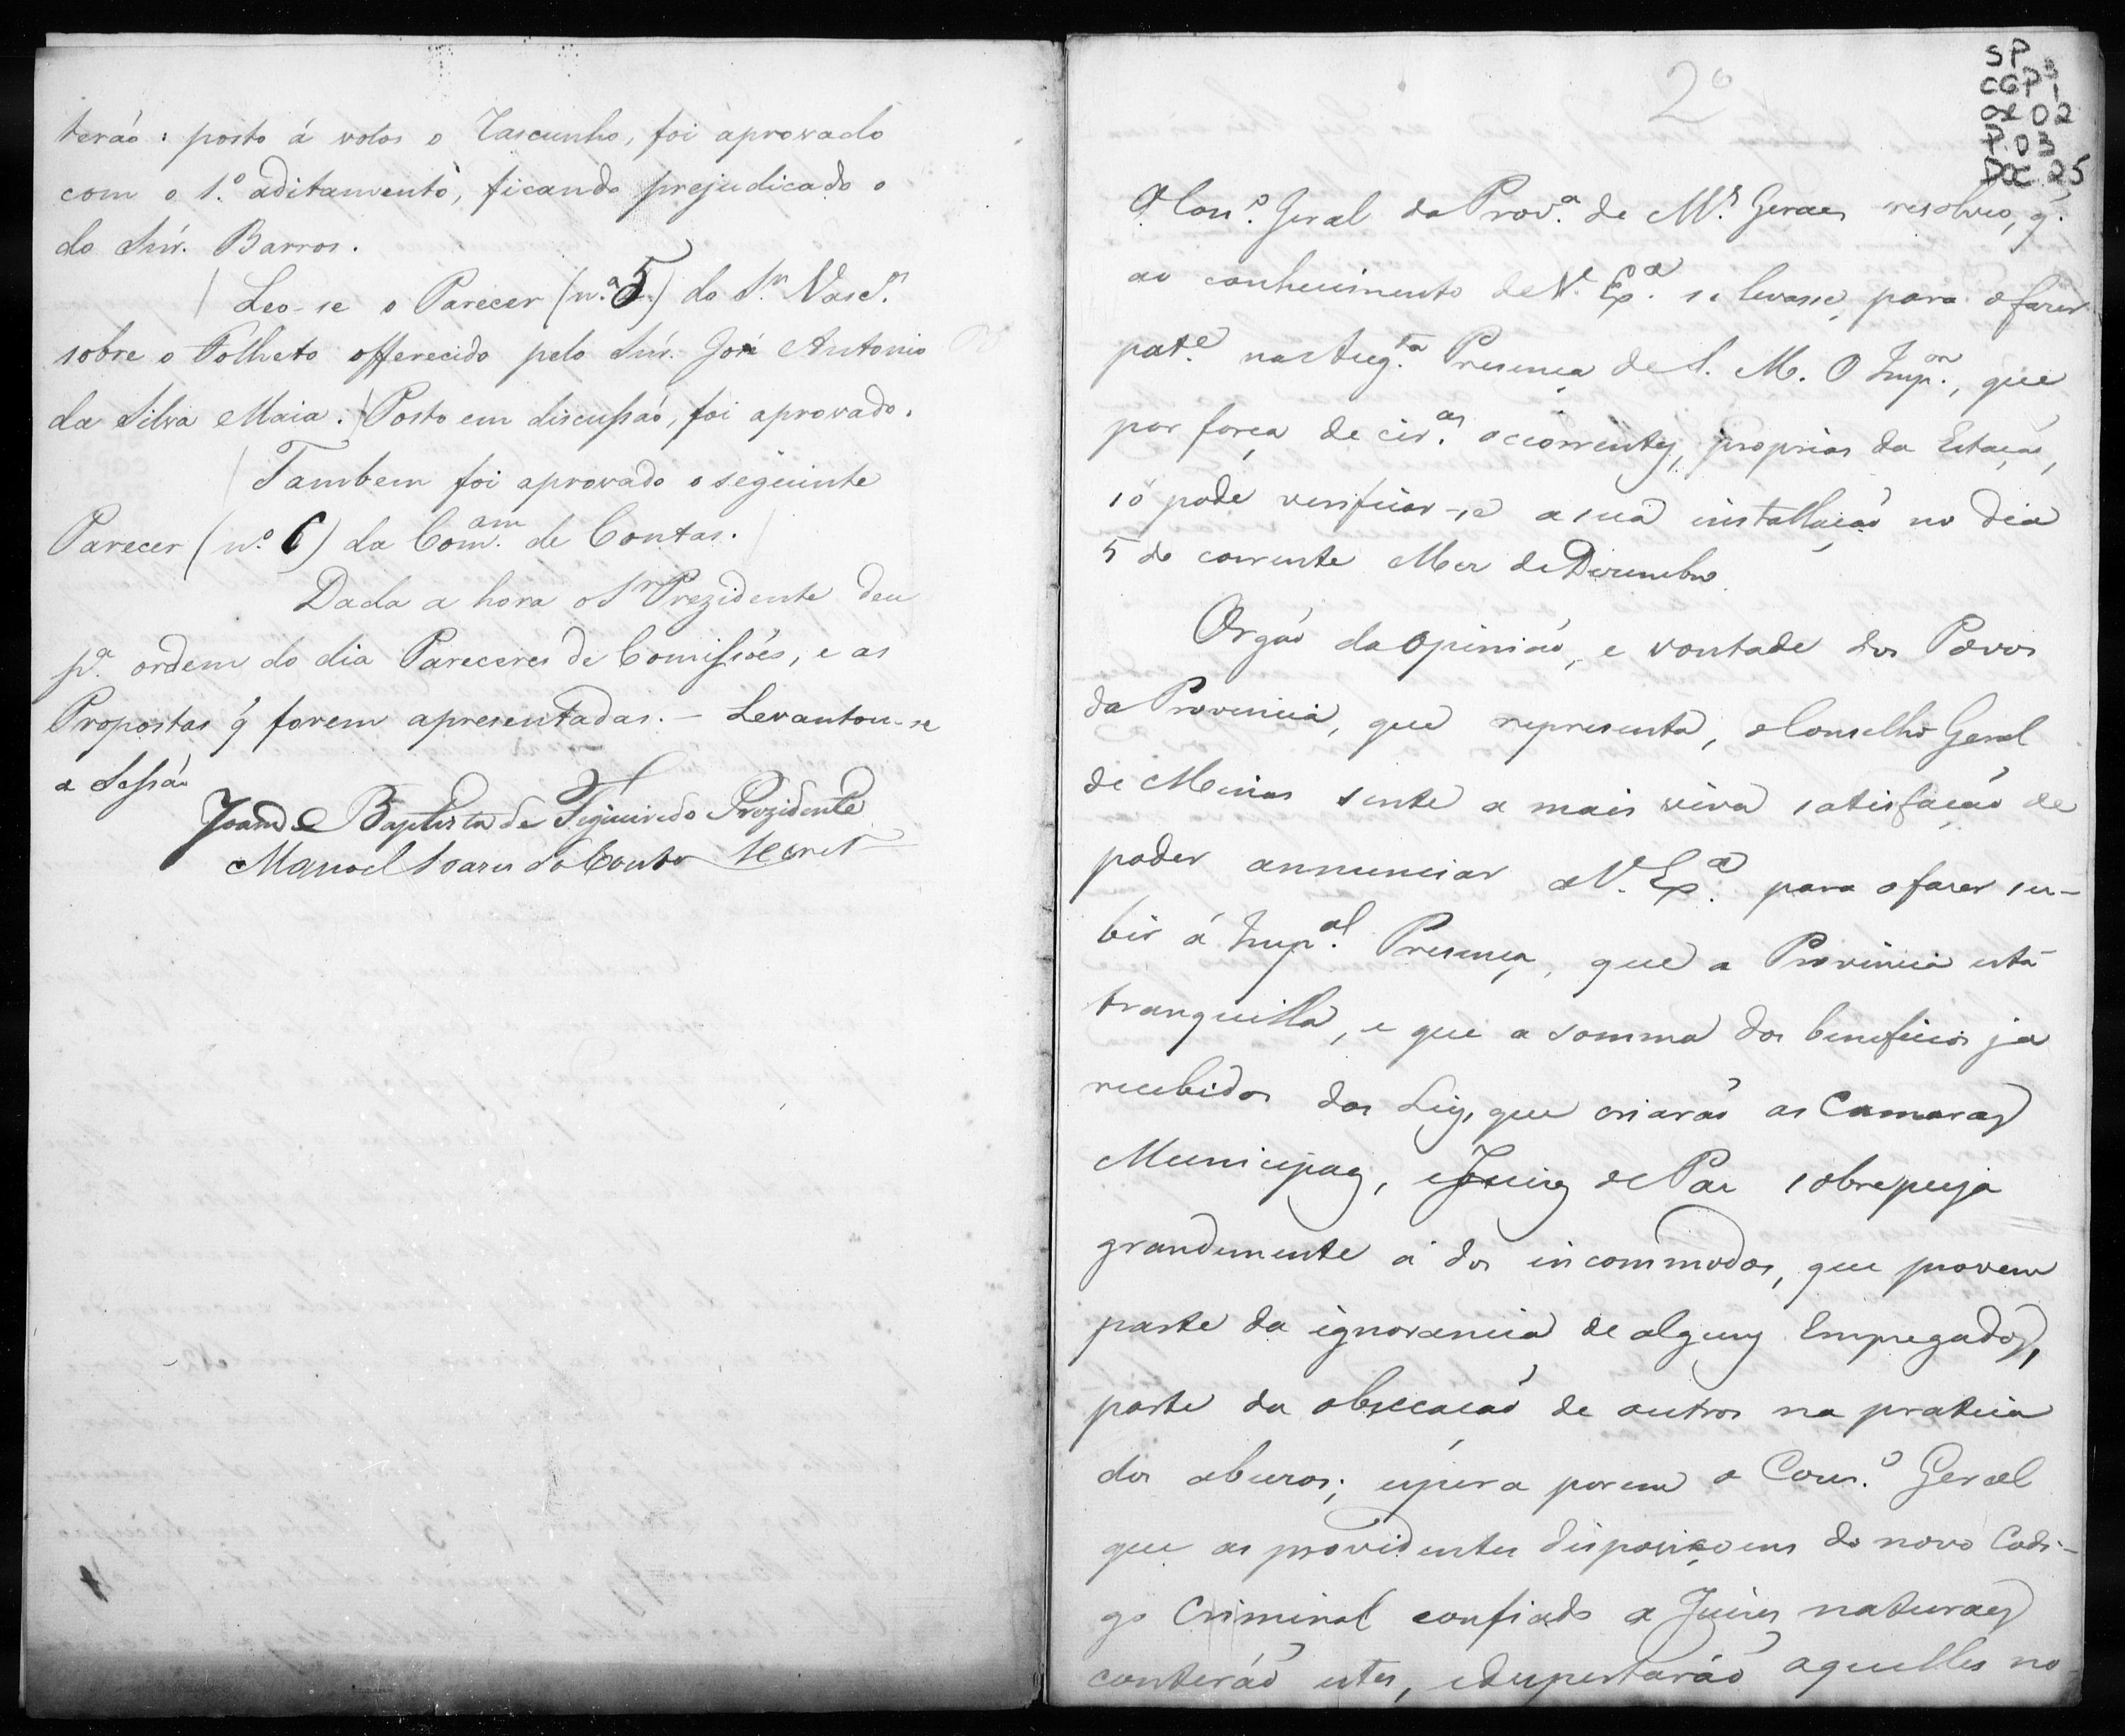 teráo: posto á votos o Rascunho, foi aprovado
com o 1.º aditamento, ficando prejudicado o
do Snr. Barros.
Leo-se o Parecer (nº 5) do Sr. Vasc.os
sobre o Folheto offerecido pelo Snr. José Antonio
da Silva Maia. Posto em discussaõ, foi aprovado.
Tambem foi aprovado o seguinte
Parecer (nº 6) da Com.am de Contas.
Dada a hora o Sr Prezidente deu
pª ordem do dia Pareceres de Comissoẽs, e as
Propostas q̃ forem apresentadas. - Levantou-se
a Sessaõ
Joaõ Baptista de Figueiredo Prezidente
Manoel Soares do Couto Secret
2º
SP
CGP 1
CX 02
P. 03
DOC 25
O Cons.º Geral da Prov.ª de M.s Geraes resolveo, q.
ao conhecimento de V. Exª se levasse, para o fazer
pat.e na Aug.ta Presença de S. M. O Imp.or, que
por força de cir.as occorrentes, proprias da Estaçaõ,
só pode verificar-se a sua installaçaõ no dia
5 do corrente Mez de Dezembro.
Orgaõ da opiniaõ, e vontade dos Povos
da Provincia, que representa, o Conselho Geral
de Minas sente a mais viva satisfaçaõ de
poder annunciar a V. Exª para o fazer su-
bir á Imp.al Presença, que a Provincia está
tranquilla, e que a somma dos beneficios já
recebidos das Leis, que criaraõ as Camaras
Municipaes, e Juizes de Paz sobrepuja
grandemente á dos incommodos, que provem
parte da ignorancia de alguns Empregados,
parte da obsecaçaõ de outros na pratica
dos abusos; espera porem o Cons.º Geral
que as providentes disposiçoens do novo Codi-
go Criminal confiado a Juizes naturaes
conteráõ estes, e despertaráõ aquelles no